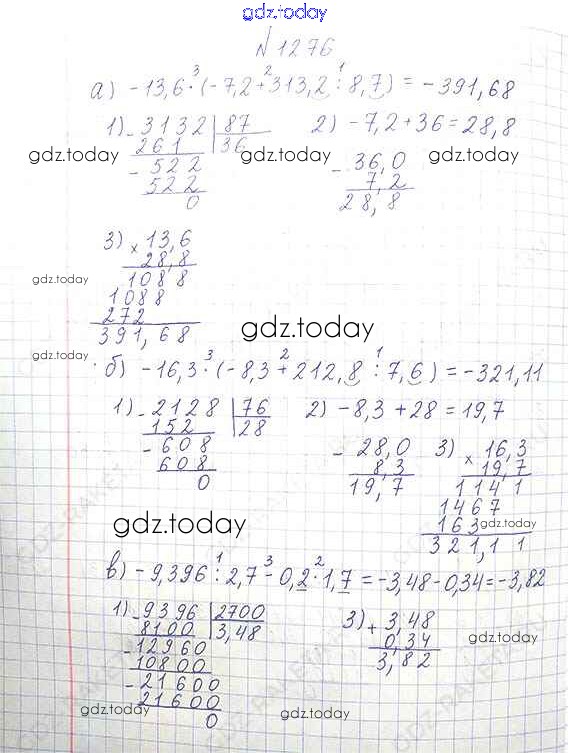 gdz.today
№1276
а) -13,6·(-7,2+313,2:8,7) = -391,68
3 2 1
1) 3132 | 87
261 36
- 522
522
0
2) -7,2+36=28,8
- 36,0
7,2
28,8
gdz.today gdz.today gdz.today
3) × 13,6
28,8
1088
1088
272
391,68
gdz.today
gdz.today
gdz.today
б) -16,3·(-8,3+212,8:7,6) = -321,11
3 2 1
1) - 2128 | 76
152 28
- 608
608
0
2) -8,3+28=19,7
- 28,0
8,3
19,7
3) × 16,3
19,7
1141
1467
163
321,11
gdz.today
gdz.today
в) -9,396:2,7-0,2·1,7=-3,48-0,34=-3,82
1 3 2
1) - 9396 | 2700
8100 3,48
- 12960
10800
- 21600
21600
0
3) + 3,48
0,34
3,82
gdz.today
gdz.today
gdz.today